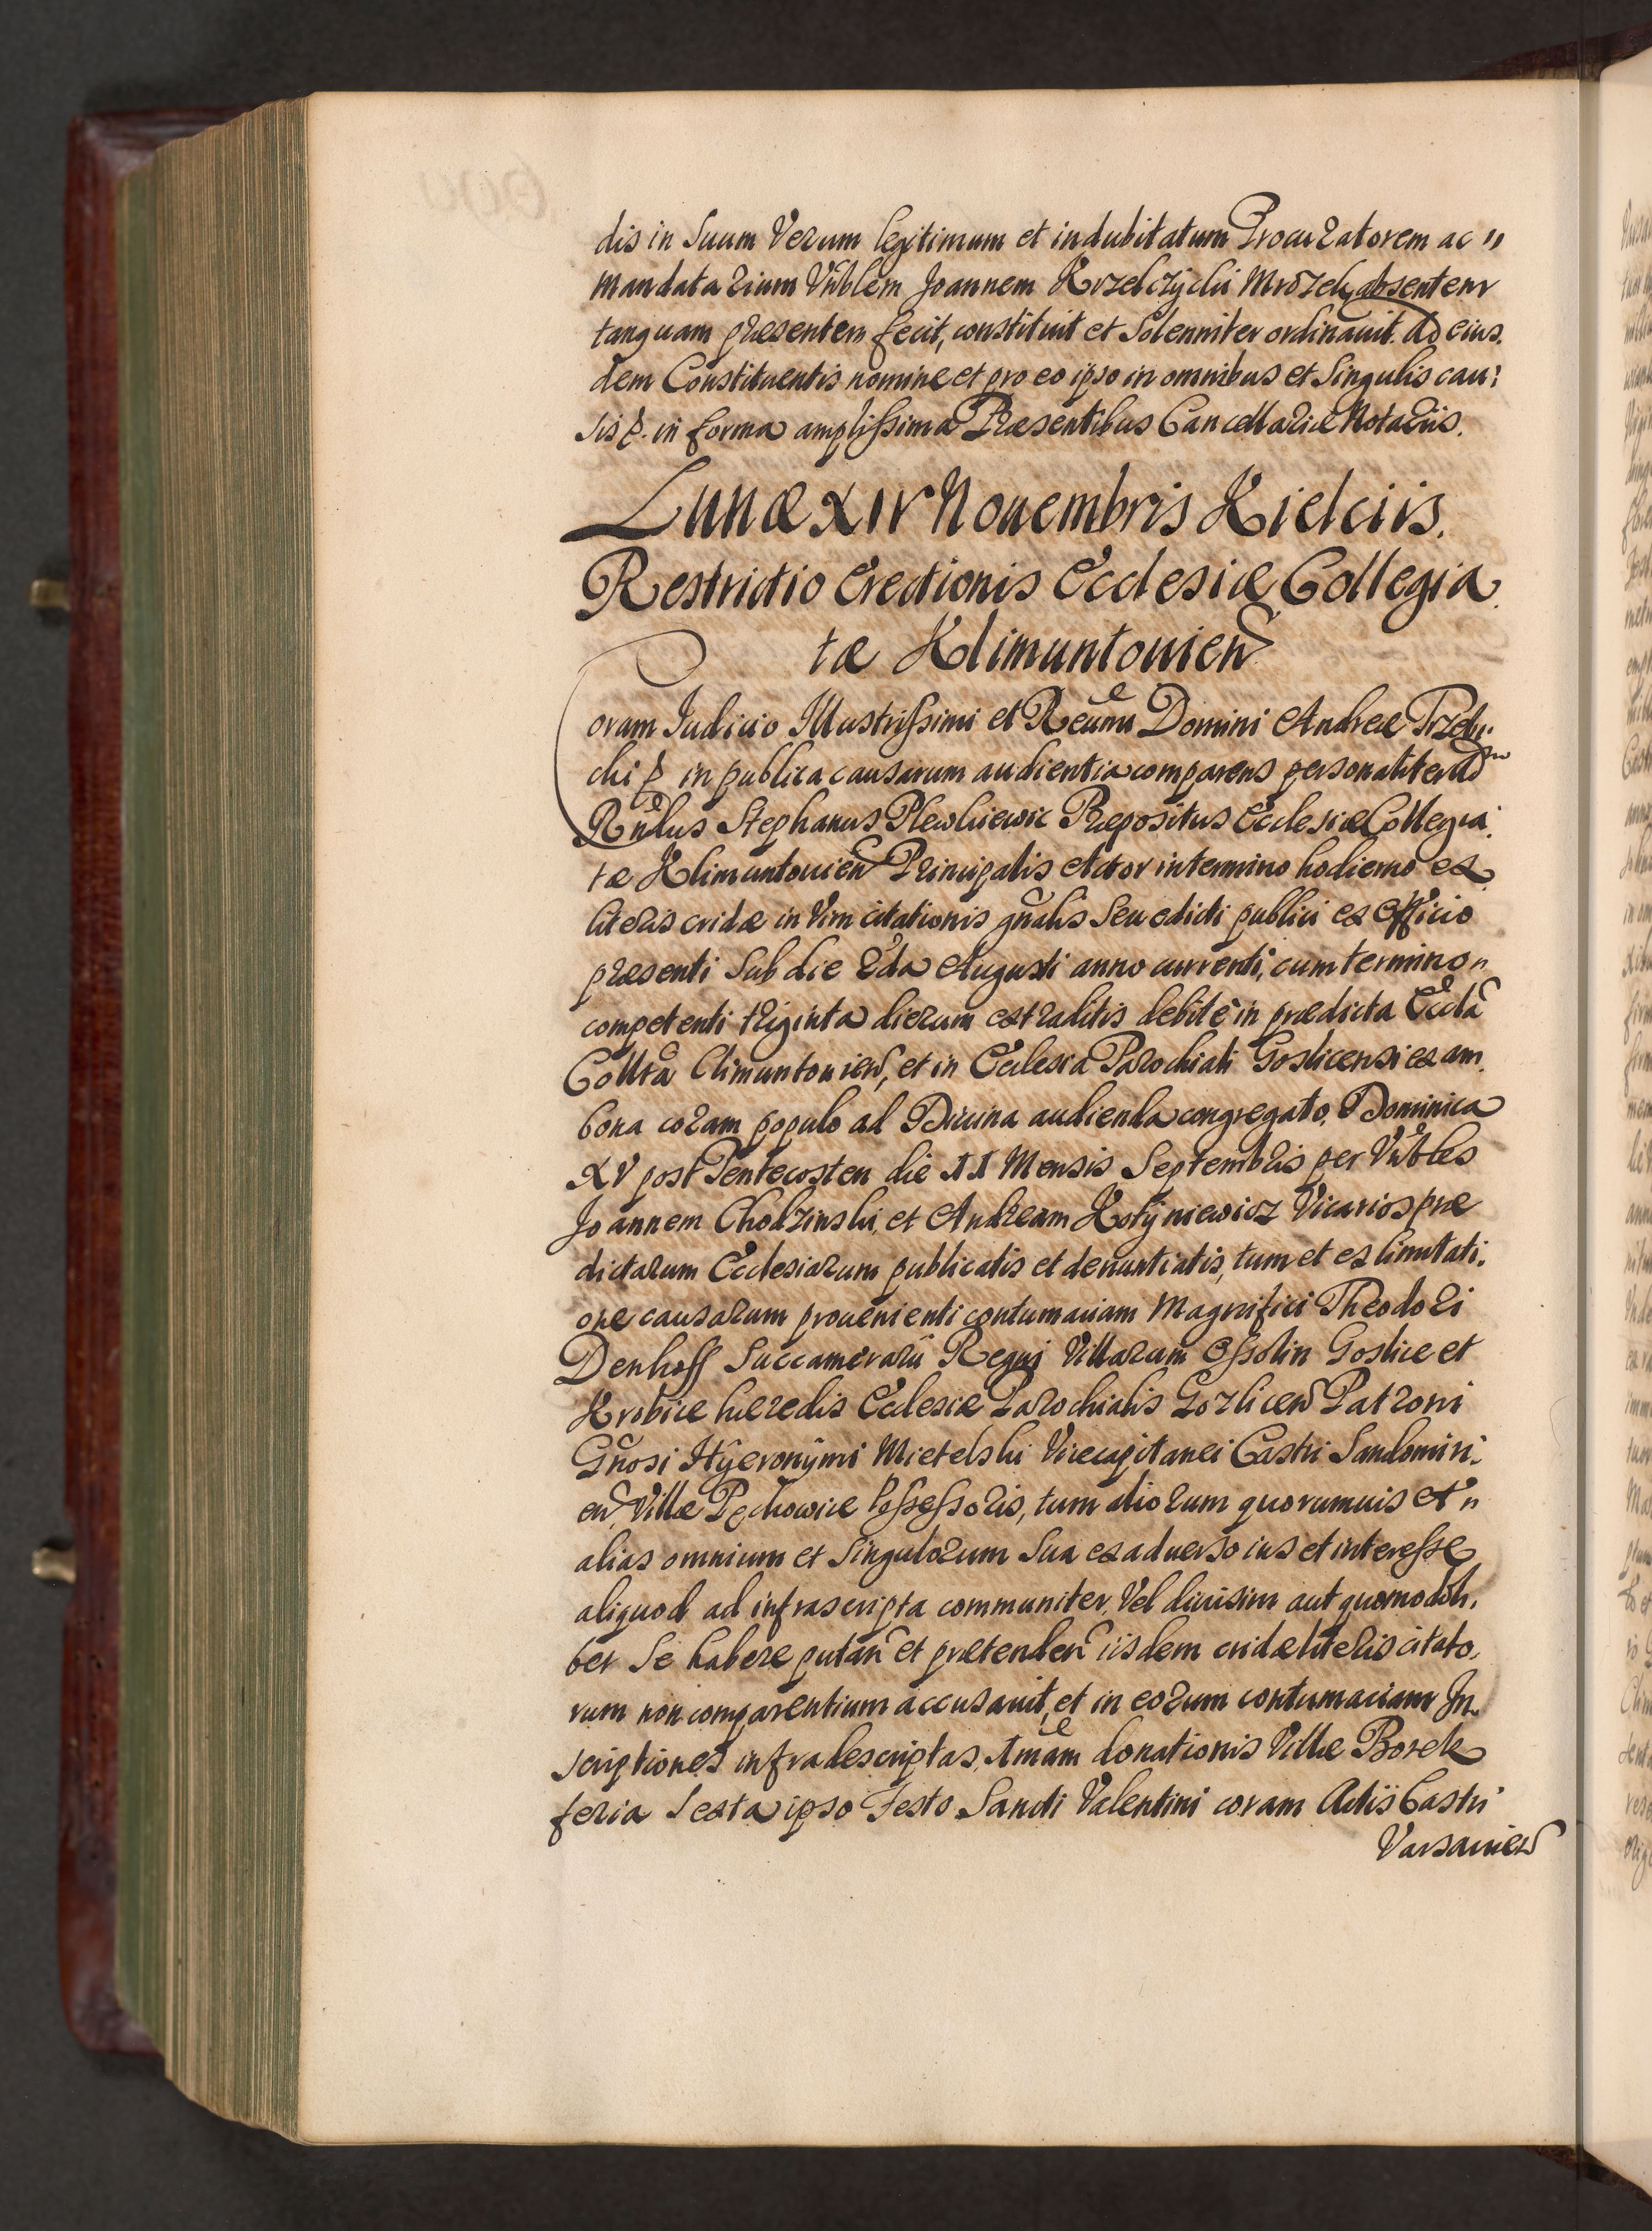 dis in Suum Verum legitimum et indubitatum Procuratorem ac "
Mandatarium Vñblem Joannem Krzelczÿcki Mrozek absentem
tanquam præsentem fecit, constituit et Solenniter ordinauit. Ad eius.
dem Constituentis nomine et pro eo ipso in omnibus et Singulis cau:
sis &. in forma amplissima Præsentibus Cancellariæ Notariis.
Lunæ XIV Nouembris Kielciis.
Restrictio Erectionis Ecclesiæ Collegia.
tæ Klimuntouien
Coram Judicio Illustrissimi et Reũmi Domini Andreæ Trzebi.
cki & in publica causarum audientia comparens personaliter Adm
Rñdus Stephanus Plewkiewic Præpositus Ecclesiæ Collegia.
tæ Klimuntouien Principalis Actor in termino hodierno ex
literis cridæ in Vim citationis gñalis Seu edicti publici ex Officio
præsenti Sub die 2da Augusti anno currenti, cum termino "
competenti triginta dierum extraditis debitè in prædicta Eccla
Collta Climuntouien, et in Ecclesia Parochiali Goslicensi ex am.
bona coram populo ad Diuina audienda congregato, Dominica
XV post Pentecosten die 11 Mensis Septembris per Vñbles
Joannem Chodzinski, et Andream Kotÿniewicz Vicarios præ
dictarum Ecclesiarum publicatis et denuntiatis, tum et ex limitati.
one causarum prouenienti contumaciam Magnifici Theodori
Denhoff Succamerarii Regni Villarum Ossolin Goslice et
Krobice hæredis Ecclesiæ Parochialis Gozlicen Patroni
Gñosi Hÿeronÿmi Mietelski Vicecapitanei Castri Sandomiri.
en, Villæ Pęchowice Possessoris, tum aliorum quorumuis et "
alias omnium et Singulorum Sua ex aduerso ius et interesse
aliquod ad infrascripta communiter Vel diuisim aut quomodoli.
bet Se habere putan et prætenden iisdem cridæ literis citato.
rum non comparentium accusauit, et in eorum contumaciam In
scriptiones infradescriptas, 1mam donationis Villæ Borek
feria Sexta ipso Festo Sancti Valentini coram Actis Castri
Varsauien